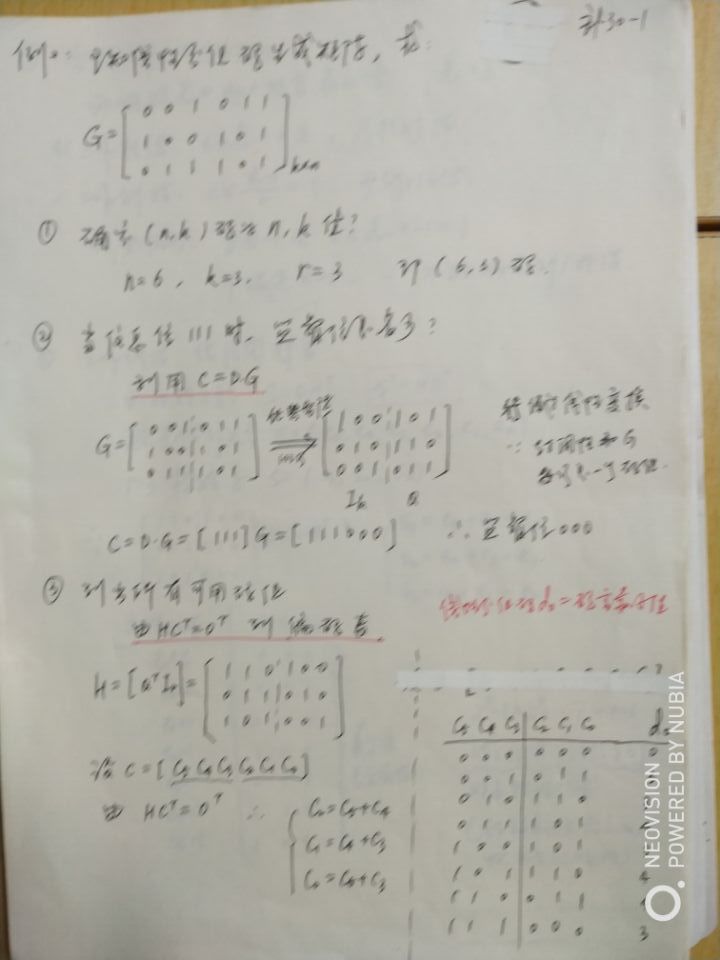 补30-1
例: 已知线性分组码生成矩阵, 求:
G=[0 0 1 0 1 1
1 0 0 1 0 1
0 1 1 1 0 1] k×n
① 确定(n,k)码的n,k值?
n=6, k=3, r=3 即(6,3)码.
② 当信息位111时, 监督位是多少?
利用 C=D·G
G=[0 0 1 0 1 1
1 0 0 1 0 1
0 1 1 1 0 1]
⇒
[1 0 0 1 0 1
0 1 0 1 1 0
0 0 1 0 1 1]
Ik Q
C=D·G=[111]G=[111000] ∴ 监督位000
③ 列出所有可用码组
由 HCᵀ=0ᵀ 列编码表
H=[QᵀIr]=[1 1 0 1 0 0
0 1 1 0 1 0
1 0 1 0 0 1]
设 C=[C5 C4 C3 C2 C1 C0]
由 HCᵀ=0ᵀ ∴
C2=C5+C4
C1=C4+C3
C0=C5+C3
C5 C4 C3 C2 C1 C0
0 0 0 0 0 0 0
0 0 1 0 1 1
0 1 0 1 1 0
0 1 1 1 0 1
1 0 0 1 0 1
1 0 1 1 1 0 4
1 1 0 0 1 1 4
1 1 1 0 0 0 3
NEOVISION
POWERED BY NUBIA